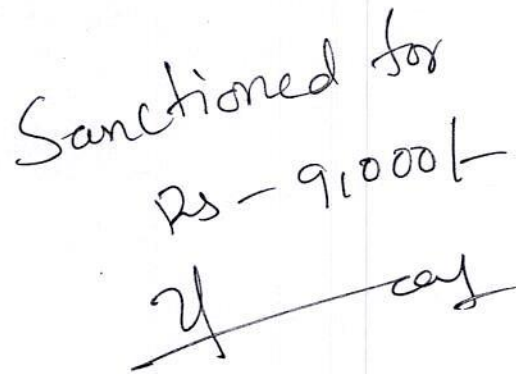 Sanctioned for
Rs - 9,000/-